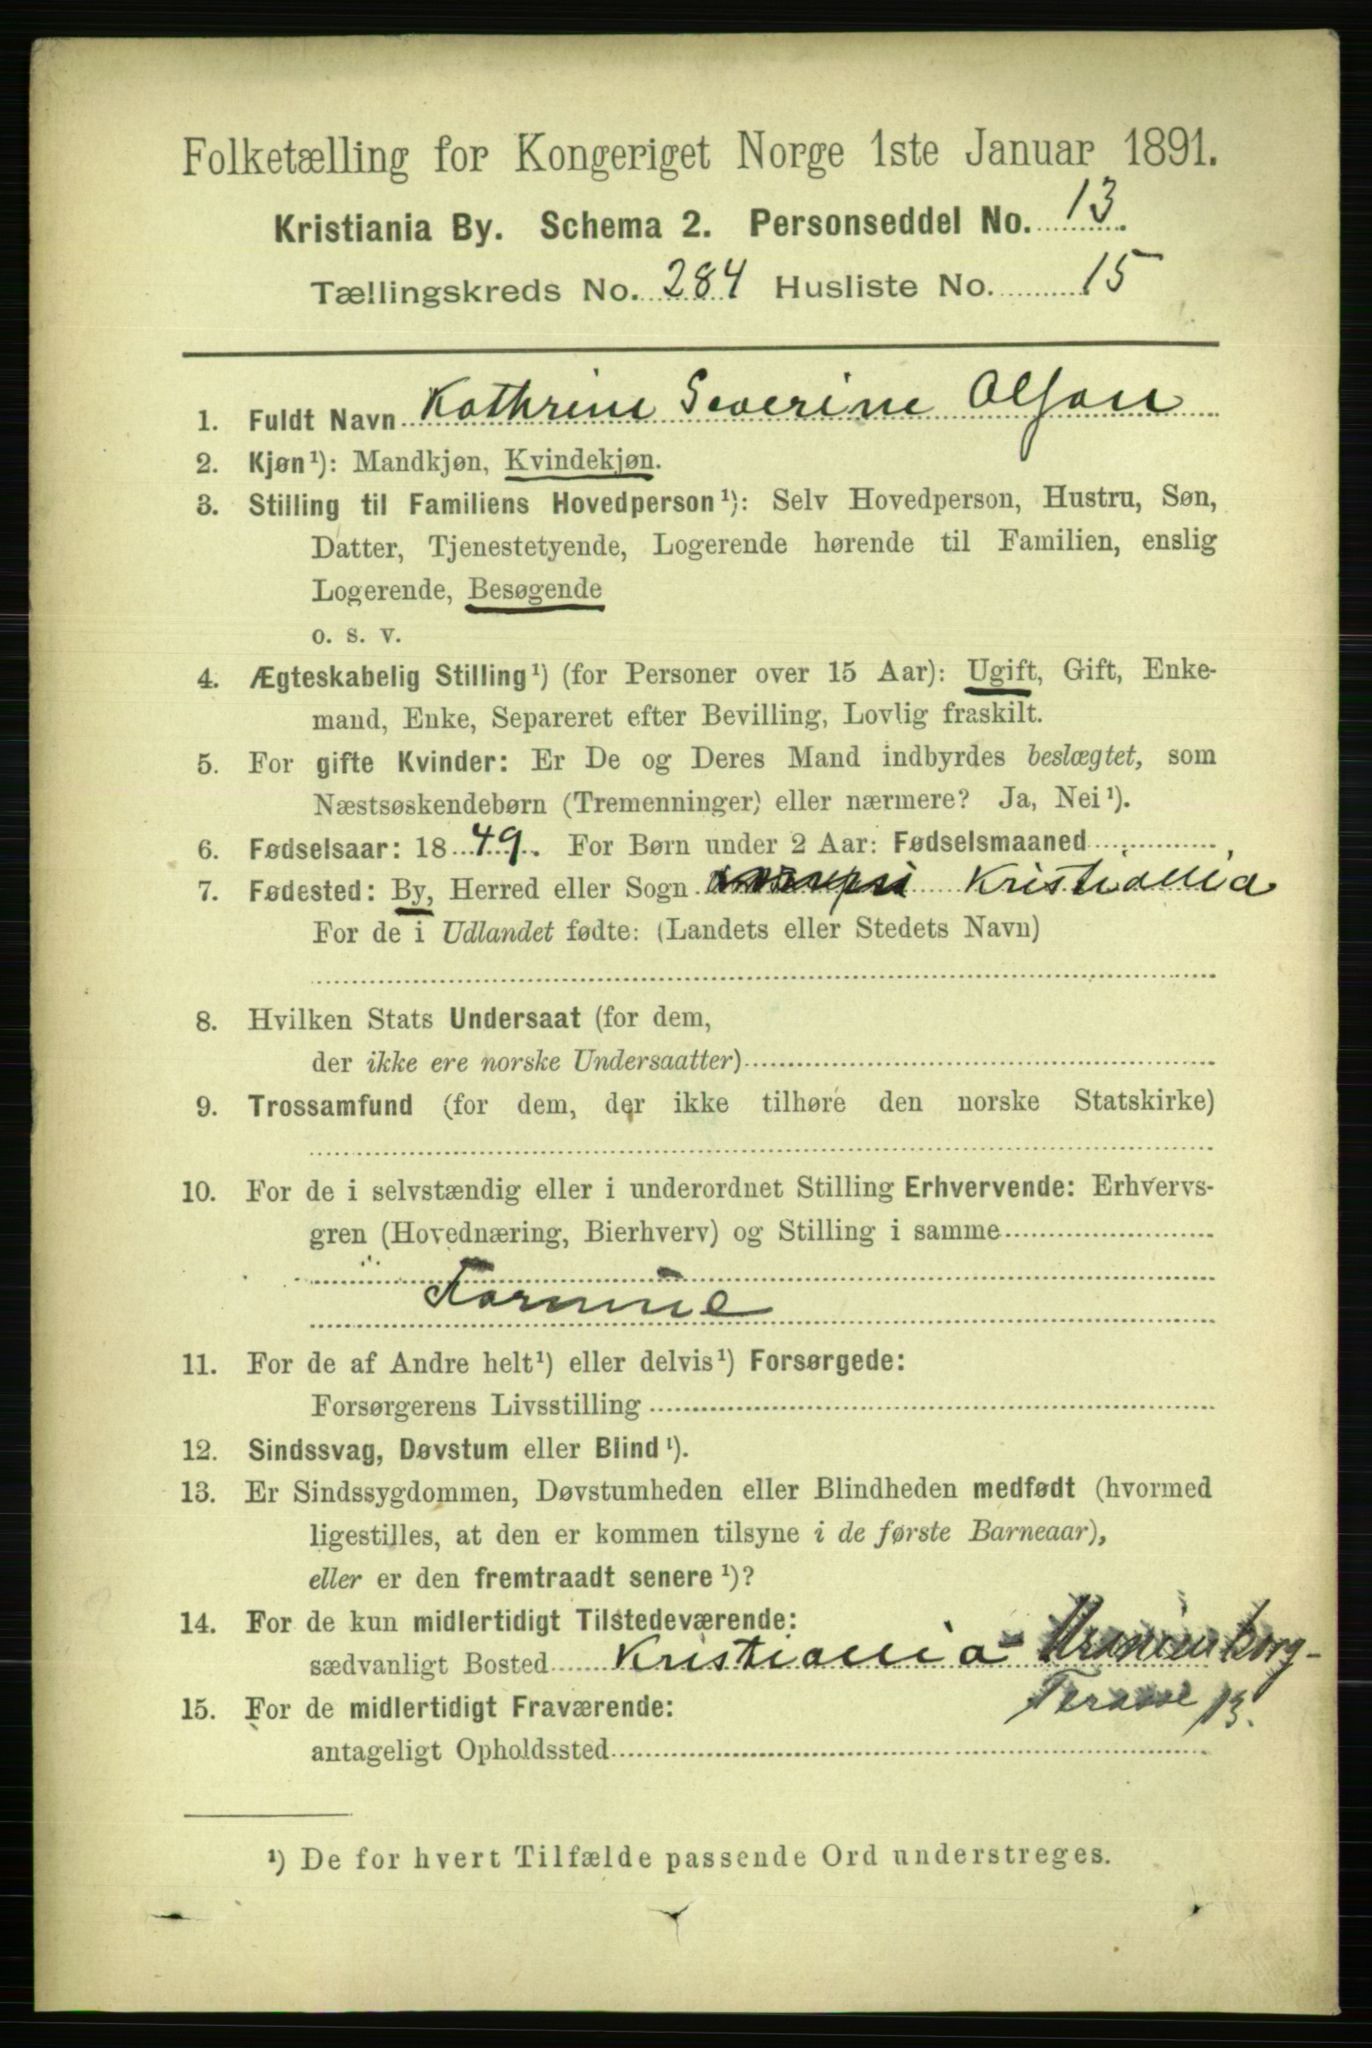 Folketælling for Kongeriget Norge 1ste Januar 1891.
Kristiania By. Schema 2. Personseddel No. 13.
Tællingskreds No. 284 Husliste No. 15
1. Fuldt Navn Kathrine Severine Olsen
2. Kjøn¹): Mandkjøn, Kvindekjøn.
3. Stilling til Familiens Hovedperson¹): Selv Hovedperson, Hustru, Søn,
Datter, Tjenestetyende, Logerende hørende til Familien, enslig
Logerende, Besøgende
o. s. v.
4. Ægteskabelig Stilling¹) (for Personer over 15 Aar): Ugift, Gift, Enke-
mand, Enke, Separeret efter Bevilling, Lovlig fraskilt.
5. For gifte Kvinder: Er De og Deres Mand indbyrdes beslægtet, som
Næstsøskendebørn (Tremenninger) eller nærmere? Ja, Nei¹).
6. Fødselsaar: 1849. For Børn under 2 Aar: Fødselsmaaned
7. Fødested: By, Herred eller Sogn Kristiania
For de i Udlandet fødte: (Landets eller Stedets Navn)
8. Hvilken Stats Undersaat (for dem,
der ikke ere norske Undersaatter)
9. Trossamfund (for dem, der ikke tilhøre den norske Statskirke)
10. For de i selvstændig eller i underordnet Stilling Erhvervende: Erhvervs-
gren (Hovednæring, Bierhverv) og Stilling i samme
11. For de af Andre helt¹) eller delvis¹) Forsørgede:
Forsørgerens Livsstilling
12. Sindssvag, Døvstum eller Blind¹).
13. Er Sindssygdommen, Døvstumheden eller Blindheden medfødt (hvormed
ligestilles, at den er kommen tilsyne i de første Barneaar),
eller er den fremtraadt senere¹)?
14. For de kun midlertidigt Tilstedeværende:
sædvanligt Bosted Kristiania - Uranienborg-
Terasse 13.
15. For de midlertidigt Fraværende:
antageligt Opholdssted
¹) De for hvert Tilfælde passende Ord understreges.